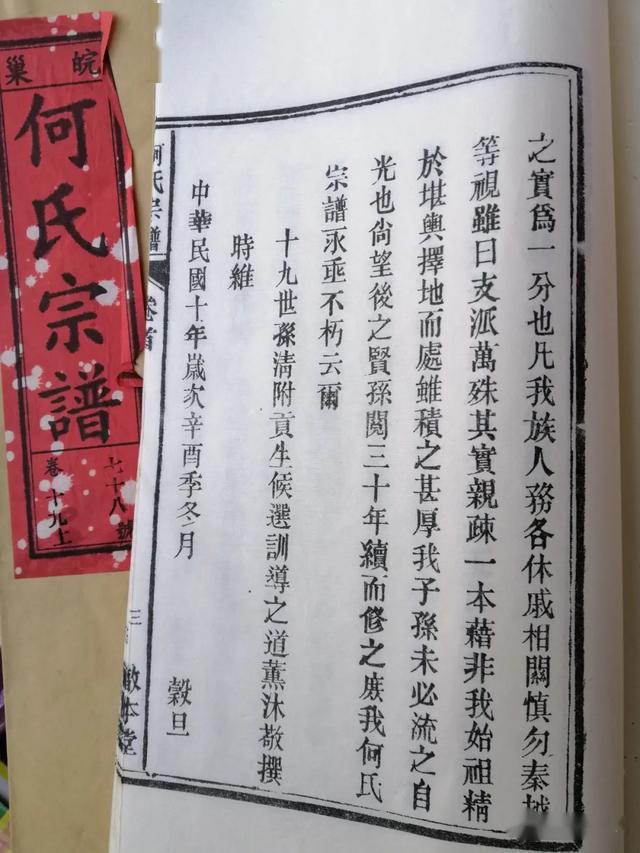 之實爲一分也凡我族人務各休戚相關慎勿秦越
等視雖曰支派萬殊其實親疎一本藉非我始祖精
於堪輿擇地而處雖積之甚厚我子孫未必流之自
光也尙望後之賢孫閱三十年續而修之庶我何氏
宗譜永垂不朽云爾
十九世孫清附貢生候選訓導之道薰沐敬撰
時維
中華民國十年歲次辛酉季冬月 穀旦
何氏宗譜 卷首 三 本堂
皖巢
何氏宗譜
七十八號
卷十九上